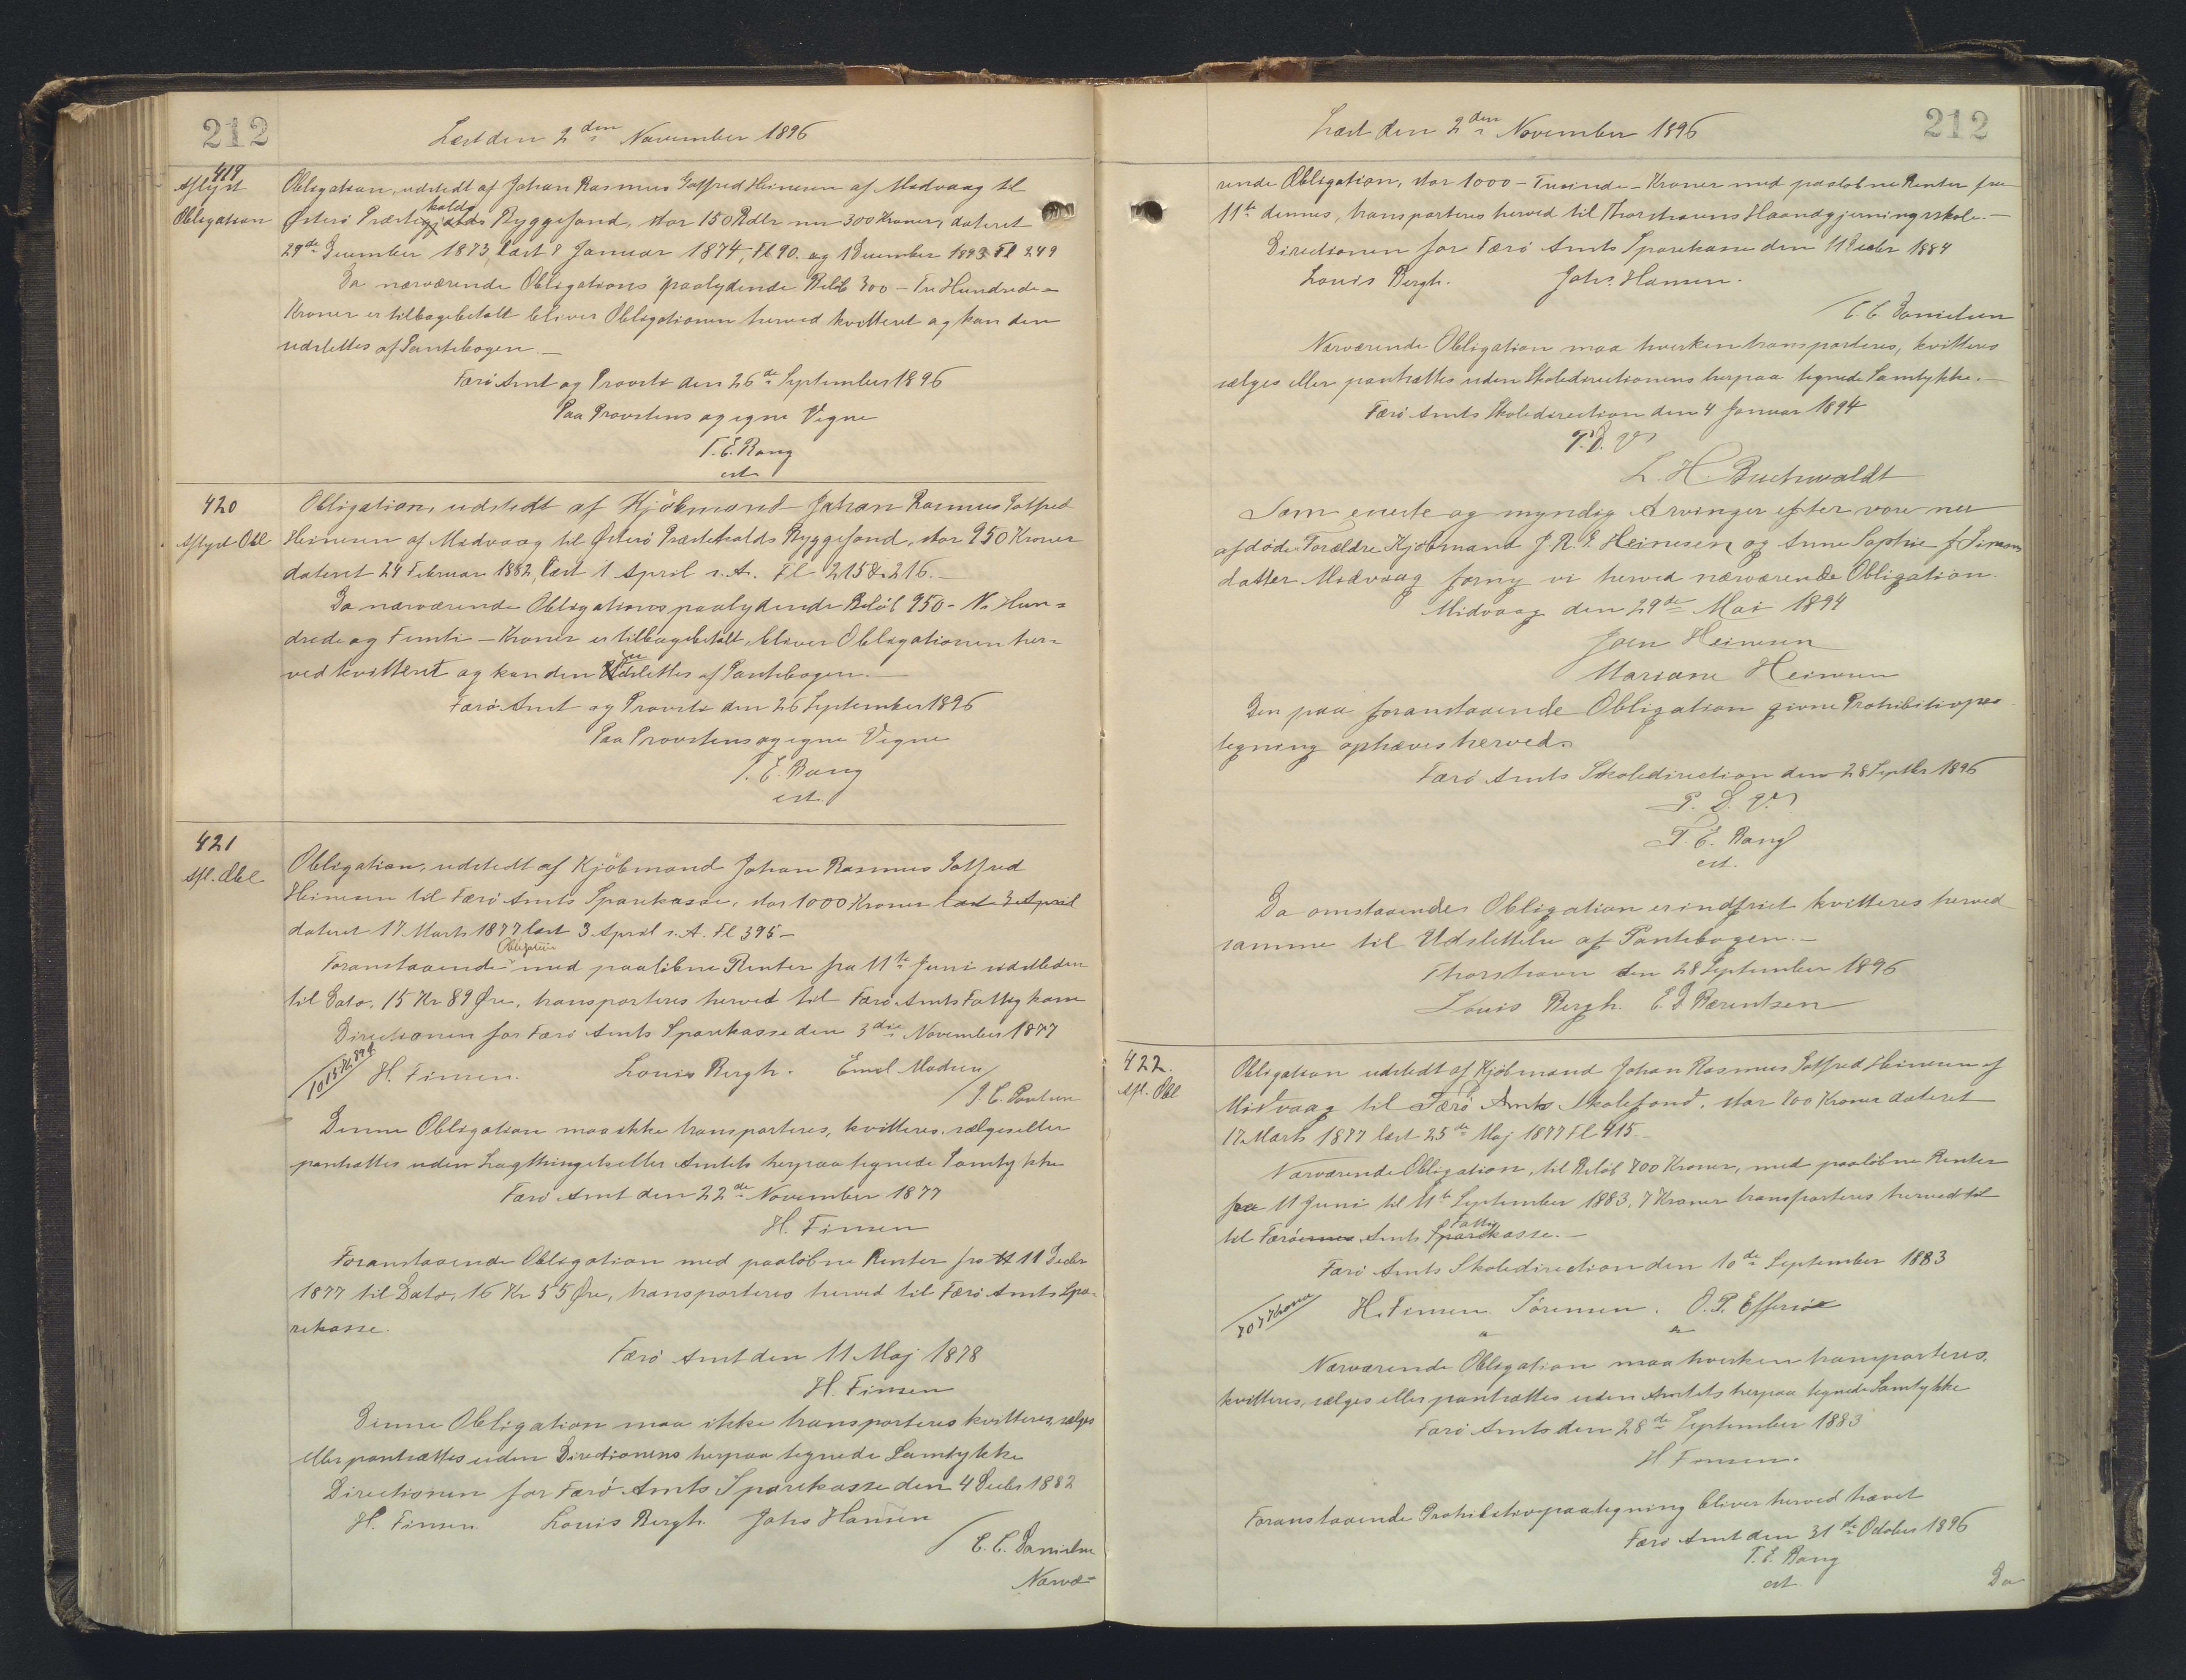 212
Læst den 2den November 1896
419
Aflyst
Obligation
Obligation, udstedt af Johan Rasmus Gotfred Heinesen af Midvaag til
kalds
Østerø Præstegjælds Byggefond, stor 150 Rdlr nu 300 Kroner, dateret
29de December 1873, læst 8 Januar 1874, Fl 90. og 1 December 1893 Fl 249
Da nærværende Obligations paalydende Beløb 300 - Tre Hundrede -
Kroner er tilbagebetalt bliver Obligationen herved kvitteret og kan den
udslettes af Pantebogen. —
Færø Amt og Provsti den 26de September 1896
Paa Provstens og egne Vegne
T. E. Bang
cst.
420
Aflyst Obl
Obligation, udstedt af Kjöbmand Johan Rasmus Gotfred
Heinesen af Midvaag til Østerø Præstekalds Byggefond, stor 950 Kroner
dateret 24 Februar 1882, læst 1 April s. A. Fl 215 & 216. —
Da nærværende Obligations paalydende Beløb 950 - Ni Hun=
drede og Femti - Kroner er tilbagebetalt, bliver Obligationen her=
ved kvitteret og kan den udslettes af Pantebogen. —
Færø Amt og Provsti den 26 September 1896
Paa Provstens og egne Vegne
T. E. Bang
cst.
421
Afl. Obl
Obligation, udstedt af Kjöbmand Johan Rasmus Gotfred
Heinesen til Færø Amts Sparekasse, stor 1000 Kroner læst 3 April
dateret 17 Marts 1877 læst 3 April s. A. Fl 395 —
Obligation
Foranstaaende med paaløbne Renter fra 11te Juni sidstleden
til Dato, 15 Kr 89 Øre, transporteres herved til Færø Amts Fattigkasse
Directionen for Færø Amts Sparekasse den 3die November 1877
1015 Kr 89 Ø
H. Finsen. Louis Bergh. Emil Madsen
J. C. Poulsen
Denne Obligation maa ikke transporteres, kvitteres, sælges eller
pantsættes uden Lagthingets eller Amtets herpaa tegnede Samtykke
Færø Amt den 22de November 1877
H. Finsen
Foranstaaende Obligation med paaløbne Renter fra 11 Decbr
1877 til Dato, 16 Kr 55 Øre, transporteres herved til Færø Amts Spa-
rekasse.
Færø Amt den 11 Maj 1878
H. Finsen
Denne Obligation maa ikke transporteres kvitteres, sælges
eller pantsættes uden Directionens herpaa tegnede Samtykke
Directionen for Færø Amts Sparekasse den 4 Decbr 1882
H. Finsen Louis Bergh. Johs Hansen
C. C. Danielsen
Nærvæ-
212
Læst den 2den November 1896
rende Obligation, stor 1000 - Tusinde - Kroner med paaløbne Renter fra
11te dennes, transporteres herved til Thorshavns Haandgjerningsskole. —
Directionen for Færø Amts Sparekasse den 11 Decbr 1884
Louis Bergh. Johs. Hansen.
C. C. Danielsen
Nærværende Obligation maa hverken transporteres, kvitteres
sælges eller pantsættes uden Skoledirectionens herpaa tegnede Samtykke. —
Færø Amts Skoledirection den 4 Januar 1894
P. D. V.
L. H. Buchwaldt
Som eneste og myndige Arvinger efter vore nu
afdøde Forældre Kjöbmand J. R. G. Heinesen og Anne Sophie f. Simons
datter Midvaag forny vi herved nærværende Obligation.
Midvaag den 29de Mai 1894
Joen Heinesen
Mariane Heinesen
Den paa foranstaaende Obligation givne Prohibitivpaa
tegning ophæves herved.
Færø Amts Skoledirection den 28 Septbr 1896
P. D. V.
T. E. Bang
cst.
Da omstaaende Obligation er indfriet kvitteres herved
samme til Udslettelse af Pantebogen. —
Thorshavn den 28 September 1896
Louis Bergh. E. D. Bærentsen
422.
Afl. Obl
Obligation udstedt af Kjöbmand Johan Rasmus Gotfred Heinesen af
Midvaag til Færø Amts Skolefond, stor 700 Kroner dateret
17 Marts 1877 læst 25de Maj 1877 Fl 415.
Nærværende Obligation, til Beløb 700 Kroner, med paaløbne Renter
fra 11 Juni til 11te September 1883, 7 Kroner transporteres herved til
Fattig
til Færøernes Amts Sparekasse. —
Færø Amts Skoledirection den 10de September 1883
707 Kroner
H. Finsen. Sörensen. O. P. Effersöe
Nærværende Obligation maa hverken transporteres,
kvitteres, sælges eller pantsættes uden Amtets herpaa tegnede Samtykke
Færø Amts den 28de September 1883
H Finsen.
Foranstaaende Prohibitivpaategning bliver herved hævet
Færø Amt den 31te October 1896
T. E. Bang
cst.
Da